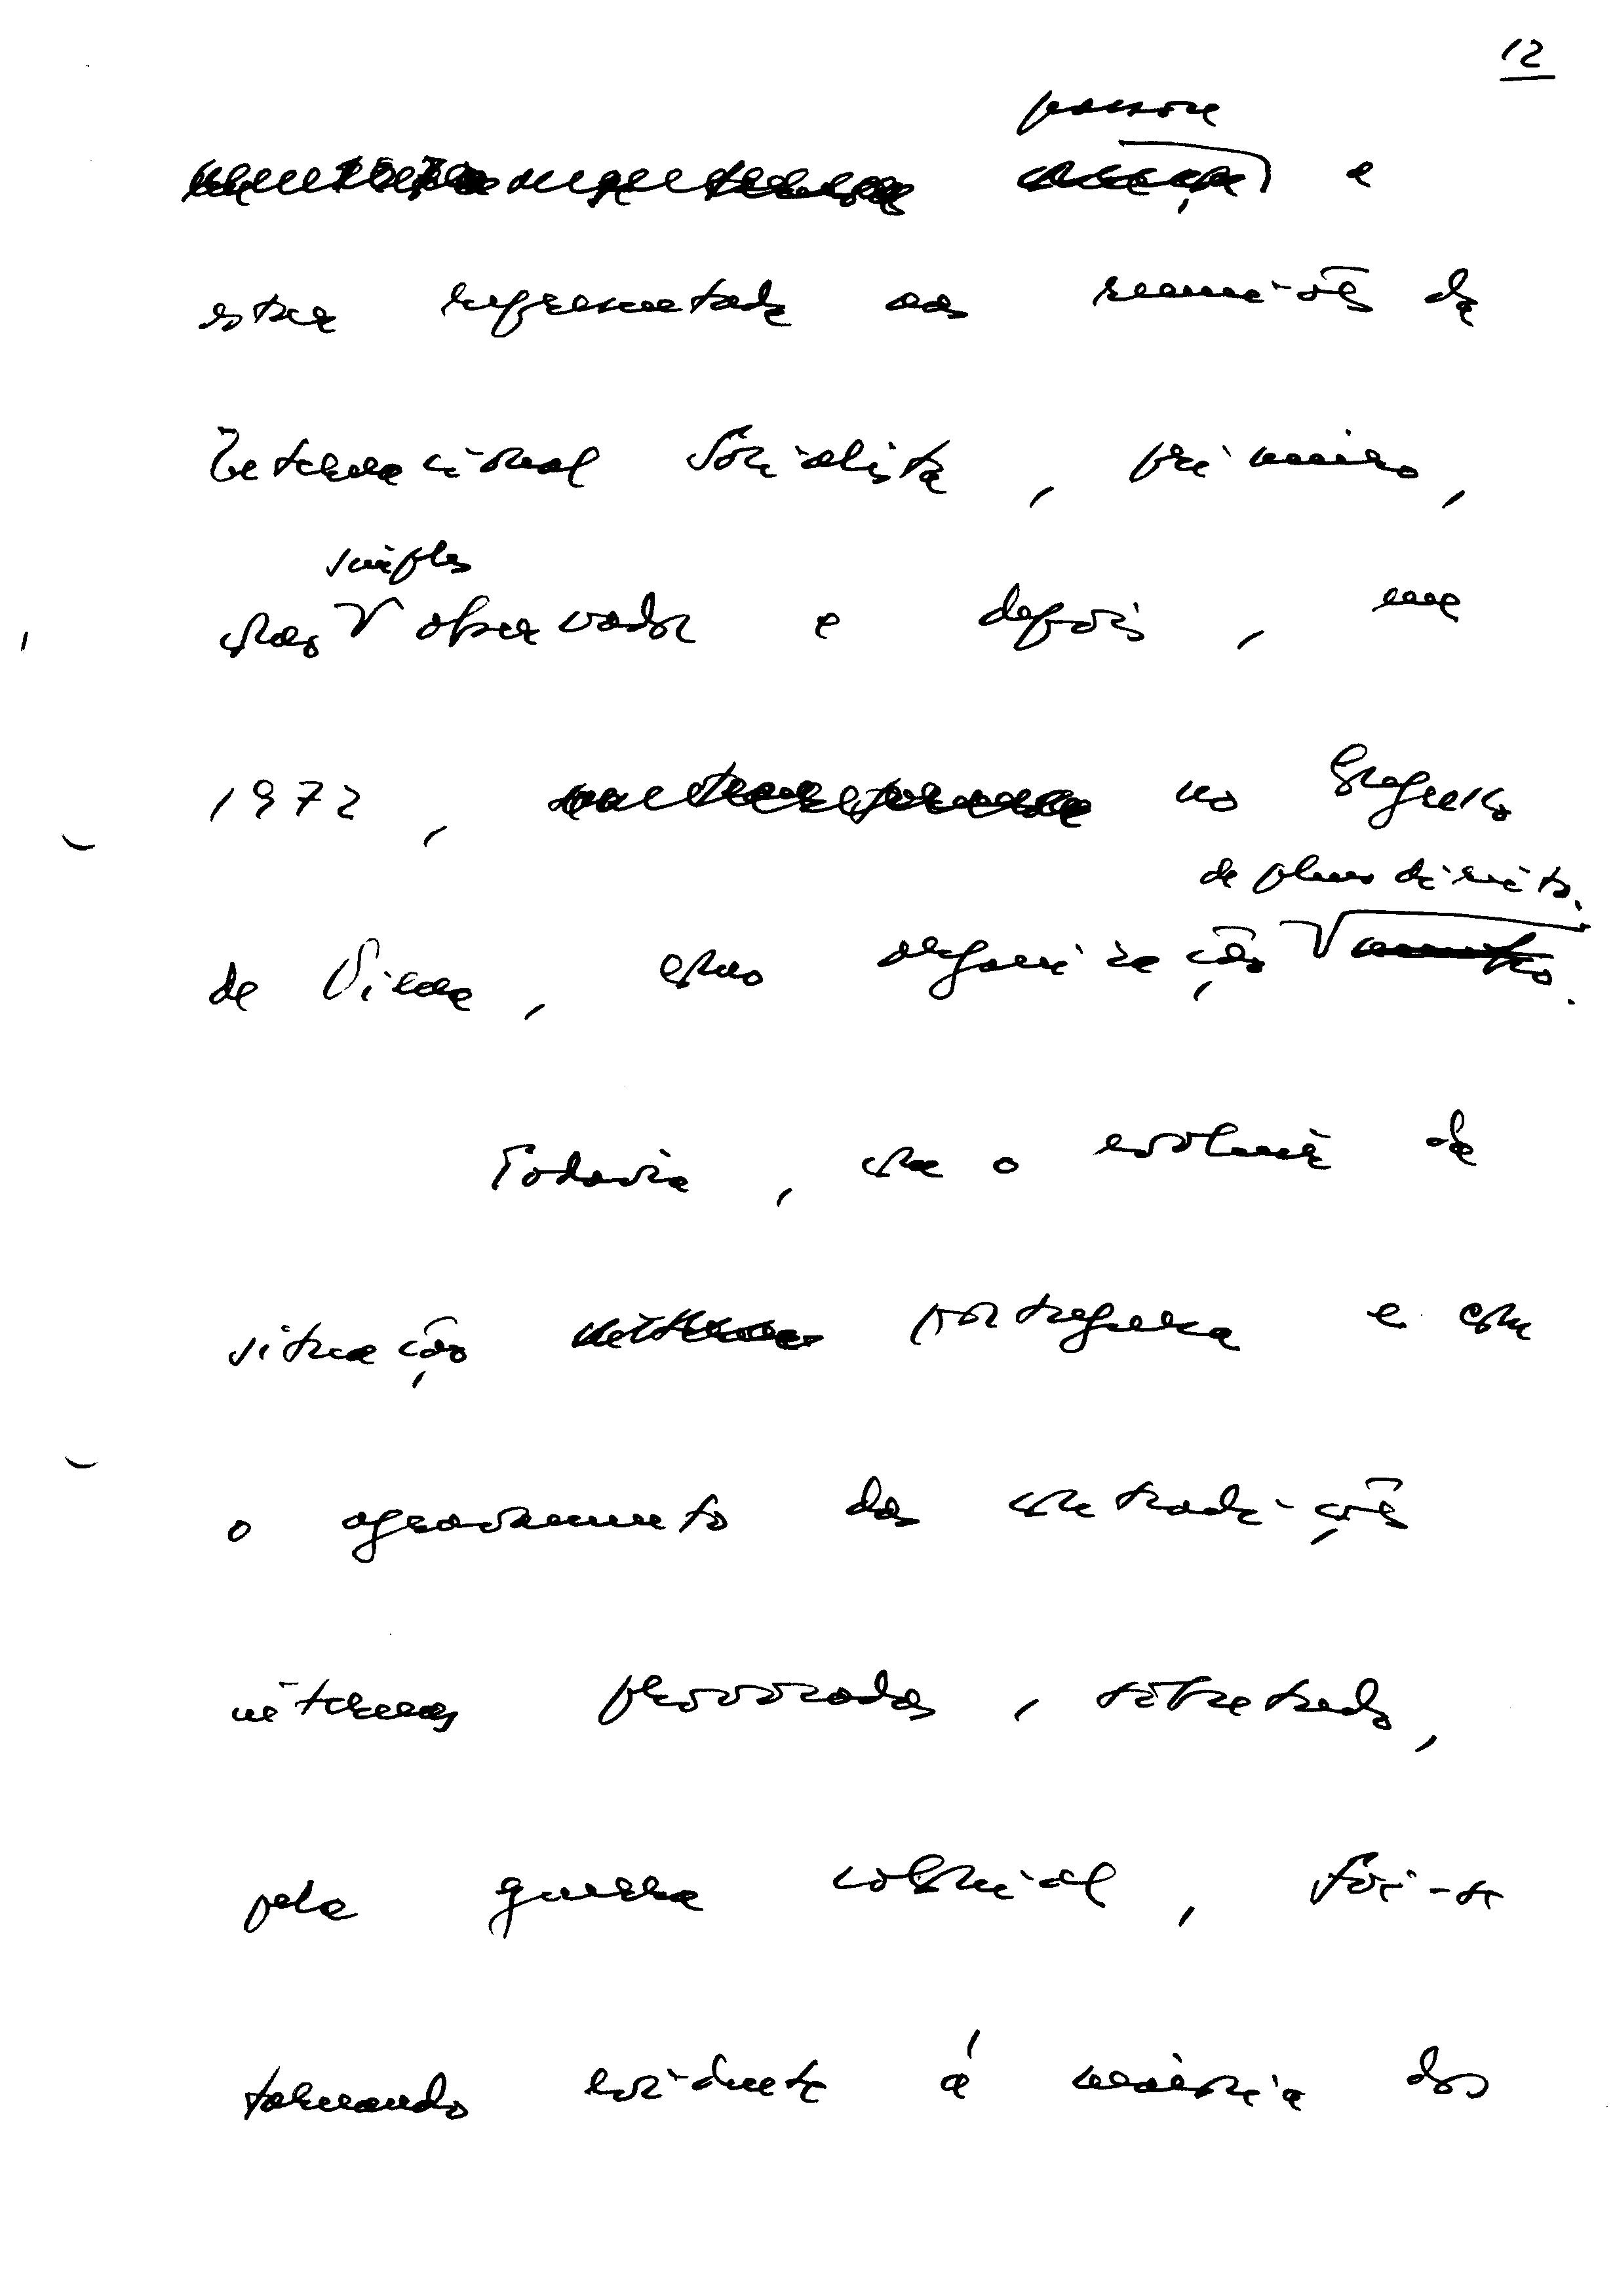 12
passou
a
estar representada nas reuniões da
Internacional Socialista, primeiro,
simples
como observador e depois, em
1972, no Congresso
de pleno direito.
de Viena, como organização
Todavia, com o evoluir da
situação portuguesa e com
o agravamento das contradições
internas provocadas, sobretudo,
pela guerra colonial, foi-se
tornando evidente à maioria dos